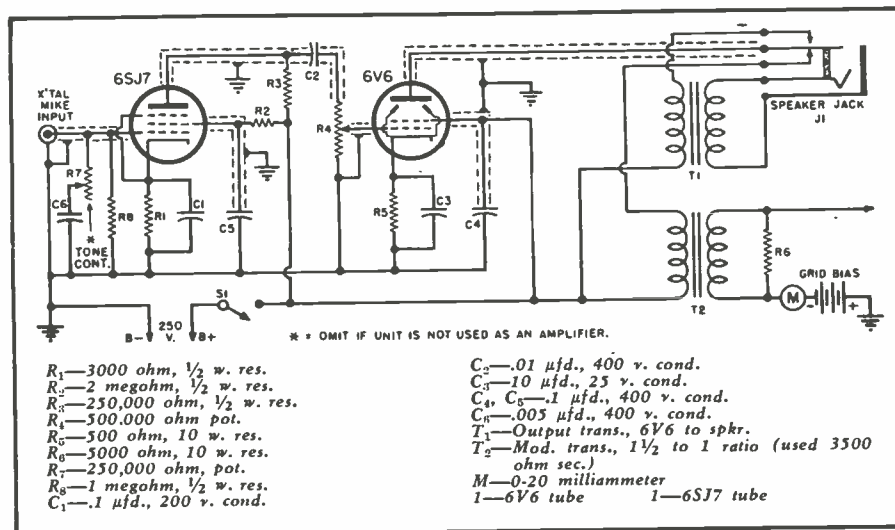 6SJ7
C2
6V6
X'TAL
MIKE
INPUT
R3
R2
R4
SPEAKER JACK
J1
R7
T1
C6
R8
R1
C1
C5
R5
C3
C4
*
TONE
CONT.
R6
S1
GRID BIAS
M
- +
T2
B- 250 V. B+
* = OMIT IF UNIT IS NOT USED AS AN AMPLIFIER.
R₁—3000 ohm, ½ w. res.
R₂—2 megohm, ½ w. res.
R₃—250,000 ohm, ½ w. res.
R₄—500.000 ohm pot.
R₅—500 ohm, 10 w. res.
R₆—5000 ohm, 10 w. res.
R₇—250,000 ohm, pot.
R₈—1 megohm, ½ w. res.
C₁—.1 μfd., 200 v. cond.
C₂—.01 μfd., 400 v. cond.
C₃—10 μfd., 25 v. cond.
C₄, C₅—.1 μfd., 400 v. cond.
C₆—.005 μfd., 400 v. cond.
T₁—Output trans., 6V6 to spkr.
T₂—Mod. trans., 1½ to 1 ratio (used 3500
ohm sec.)
M—0-20 milliammeter
1—6V6 tube 1—6SJ7 tube